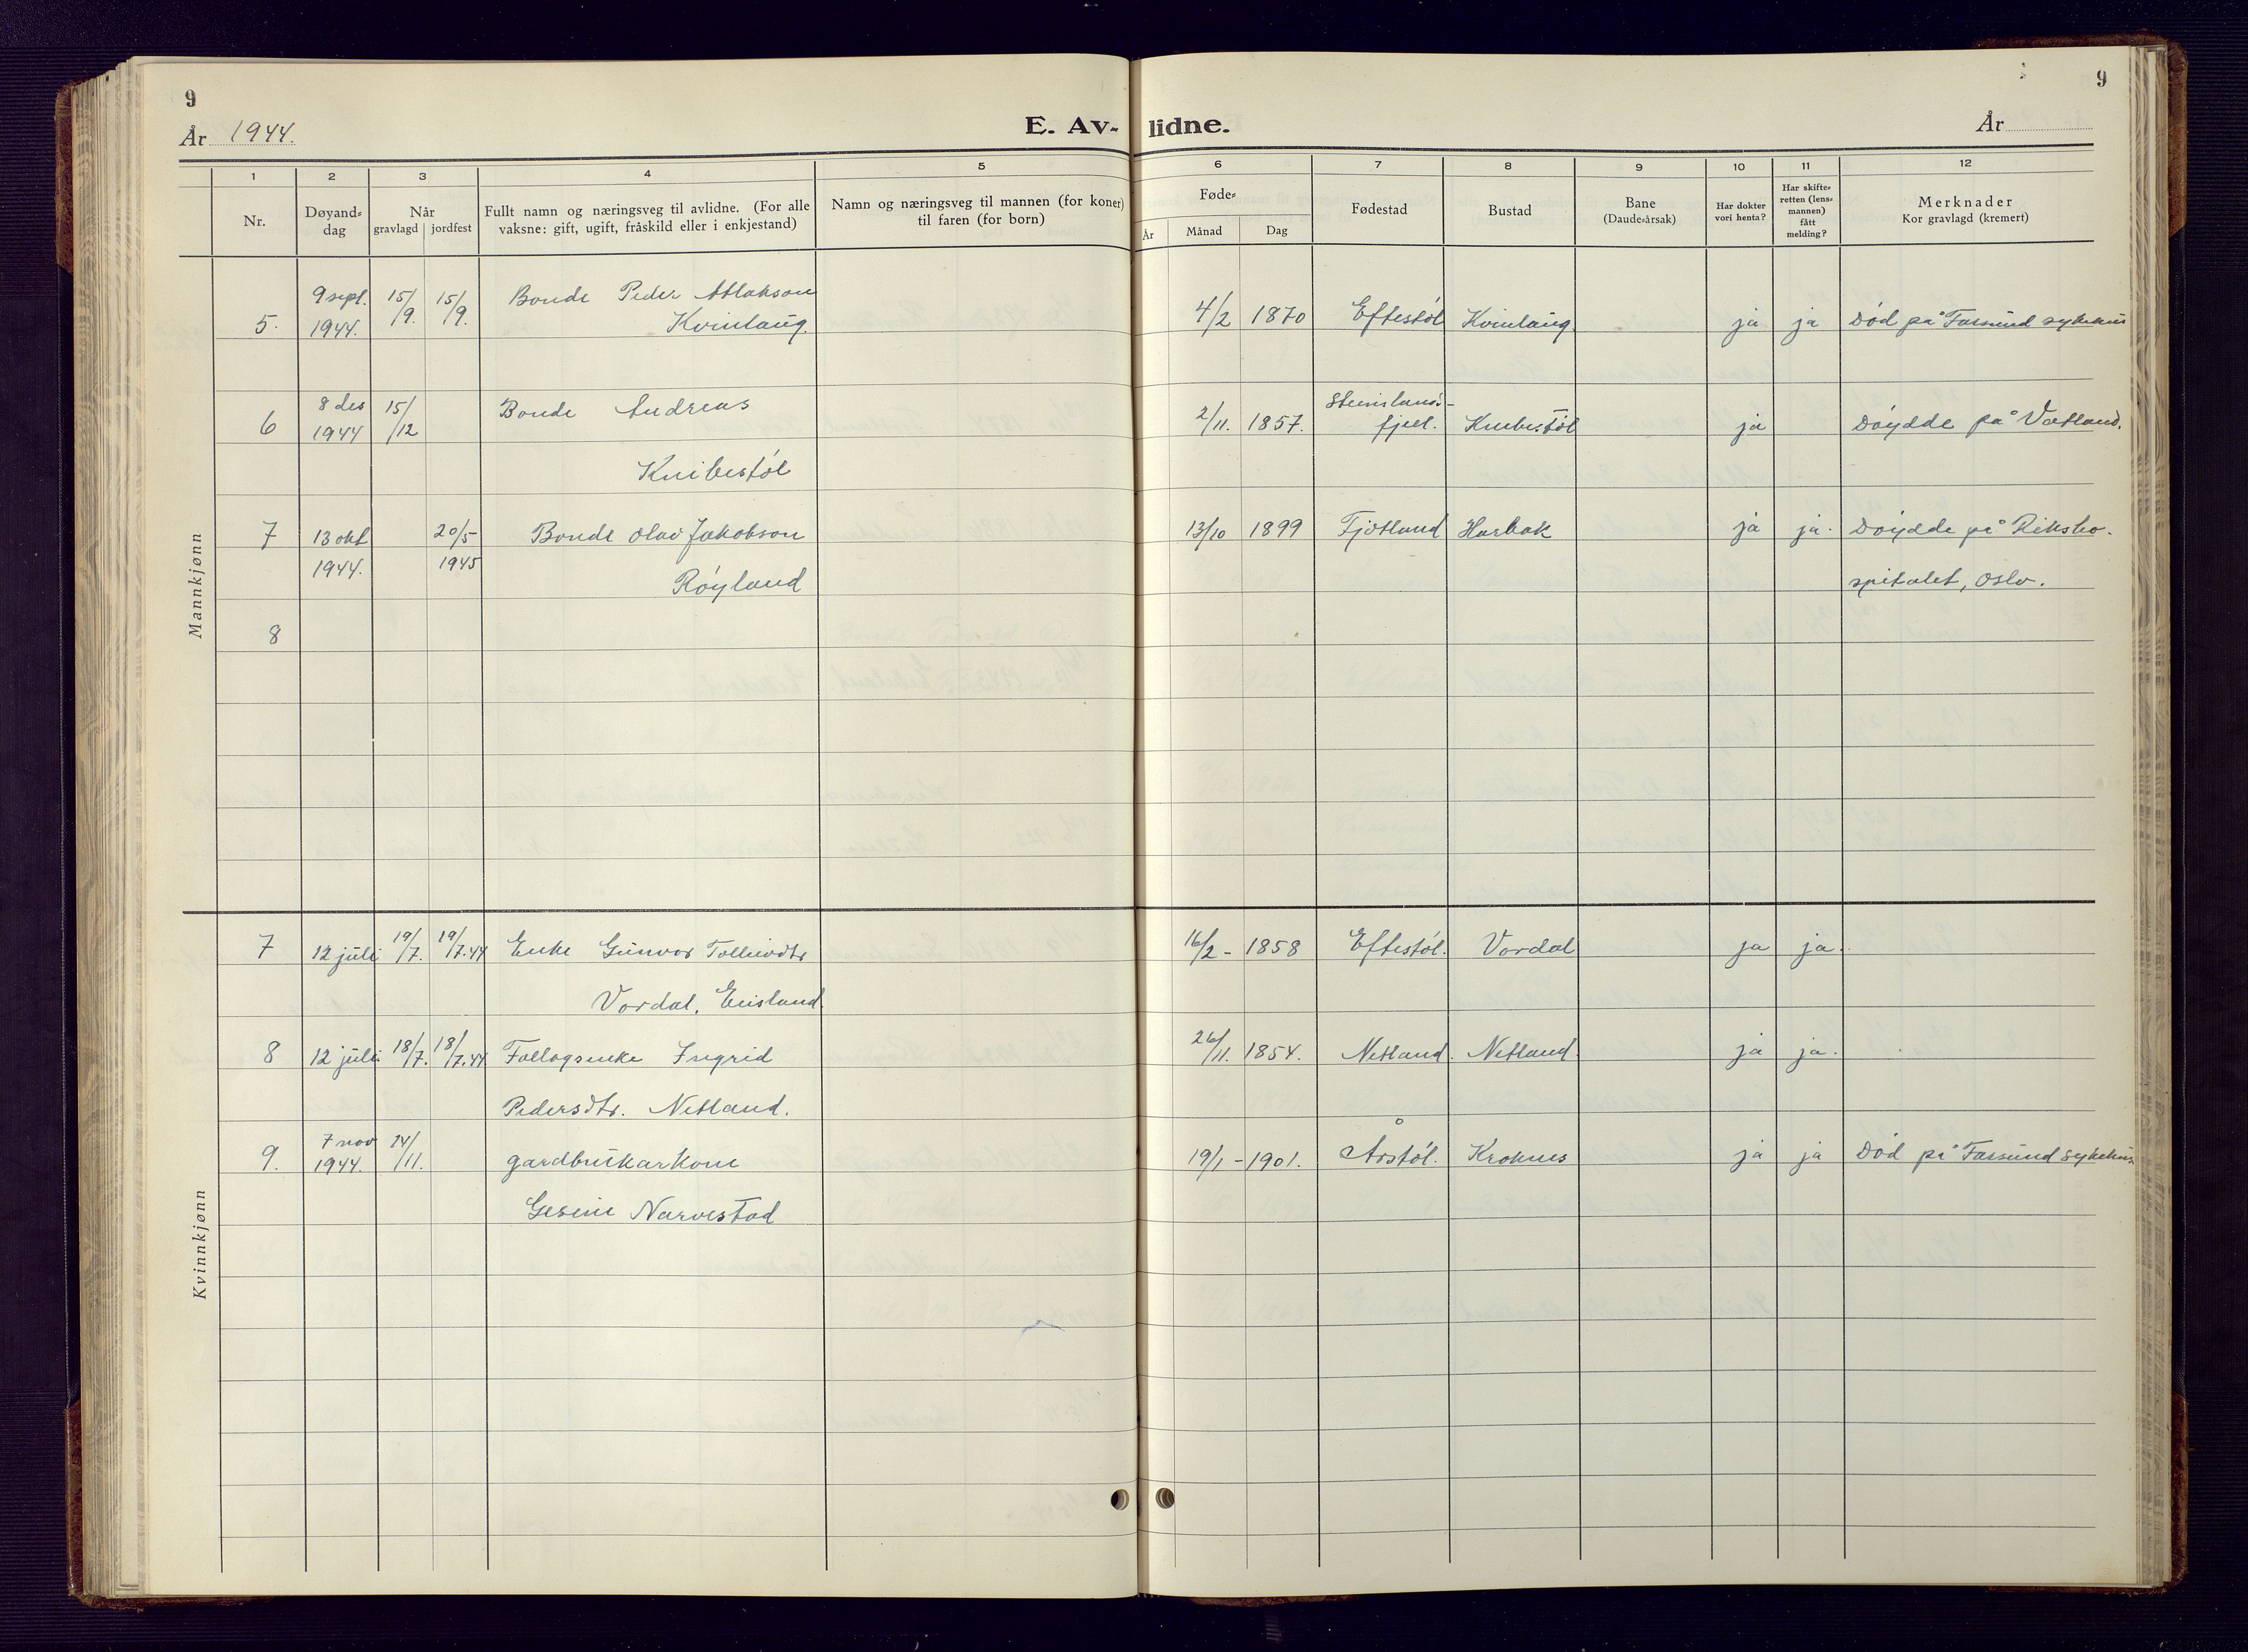 9
9
År 1944.
E. Av- lidne.
År
1 2 3 4 5 6 7 8 9 10 11 12
Nr.
Døyand-
dag
Når
gravlagd jordfest
Fullt namn og næringsveg til avlidne. (For alle
vaksne: gift, ugift, fråskild eller i enkjestand)
Namn og næringsveg til mannen (for koner)
til faren (for born)
Føde-
År Månad Dag
Fødestad
Bustad
Bane
(Daude-årsak)
Har dokter
vori henta?
Har skifte-
retten (lens-
mannen)
fått
melding?
Merknader
Kor gravlagd (kremert)
Mannkjønn
9 sept. 15/9. 15/9. Bonde Peder Atlakson
5. 1944. Kvinlaug. 4/2 1870 Eftestøl Kvinlaug ja ja Død på Farsund sykehus
8 des 15/12 Bonde Andreas Steinslands-
6 1944 2/11. 1857. fjell. Knibestøl ja Døydde på Vatland.
Knibestøl
7 13 okt 20/5- Bonde Olav Jakobson 13/10 1899 Fjotland Harbak ja ja. Døydde på Riksho-
1944. 1945 Røyland spitalet, Oslo.
8
Kvinnkjønn
7 12 juli 19/7. 19/7.44 Enke Gunvor Tollievdtr 16/2- 1858 Eftestøl. Vordal ja ja.
Vordal, Eiesland.
8 12 juli 18/7. 18/7.44 Follogsenke Ingrid 26/11. 1854. Netland. Netland. ja ja.
Pedersdtr. Netland.
7 nov 14/11.
9. 1944. gardbrukarkone 19/1-1901. Årstøl. Kroknes ja ja Død på Farsund sykehus
Gesine Narvestad